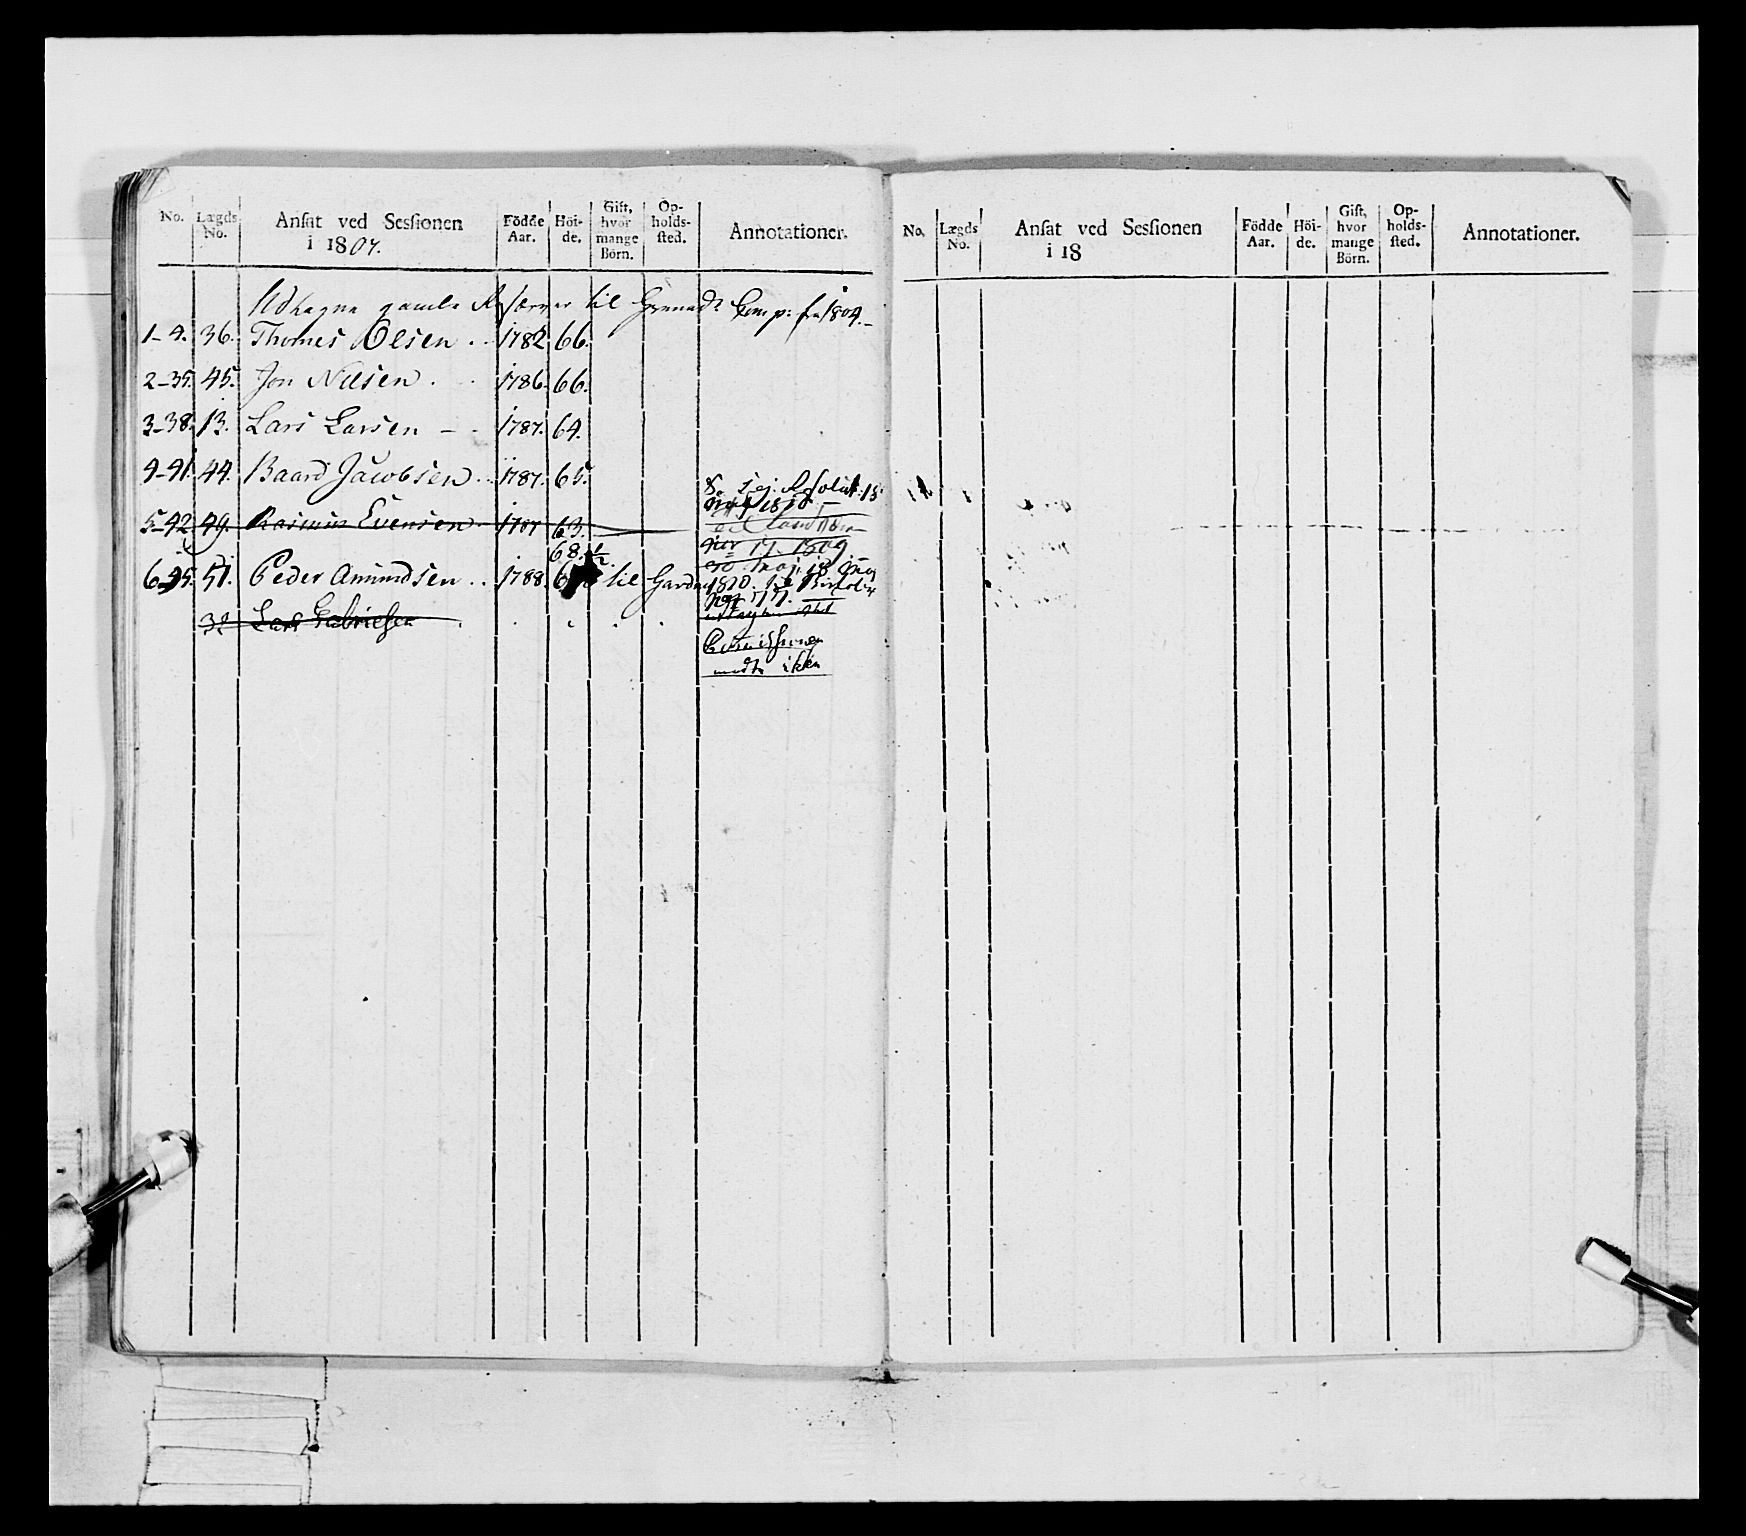 No. Lægds No. Ansat ved Sessionen i 1807. Födde Aar. Höide. Gift, hvor mange Börn. Opholdssted. Annotationer.
Udtagne gamle til Grenad: Comp: fra 1804.
1-4. 36. Thomes Olsen . . 1782 66.
2-35. 45. Jon Nilsen . . 1786. 66.
3-38. 13. Lars Larsen - - 1787. 64.
4-41. 44. Baard Jacobsen . . 1787. 65.
5-42 49. Rasmus Evensen 1787 63.
68. 1/2
6-45. 51. Peder Amundsen . . 1788. til Garden
32 Lars Gabrielsen
1810
1809
1810.
Comissionen
mødte ikke
No. Lægds No. Ansat ved Sessionen i 18 Födde Aar. Höide. Gift, hvor mange Börn. Opholdssted. Annotationer.